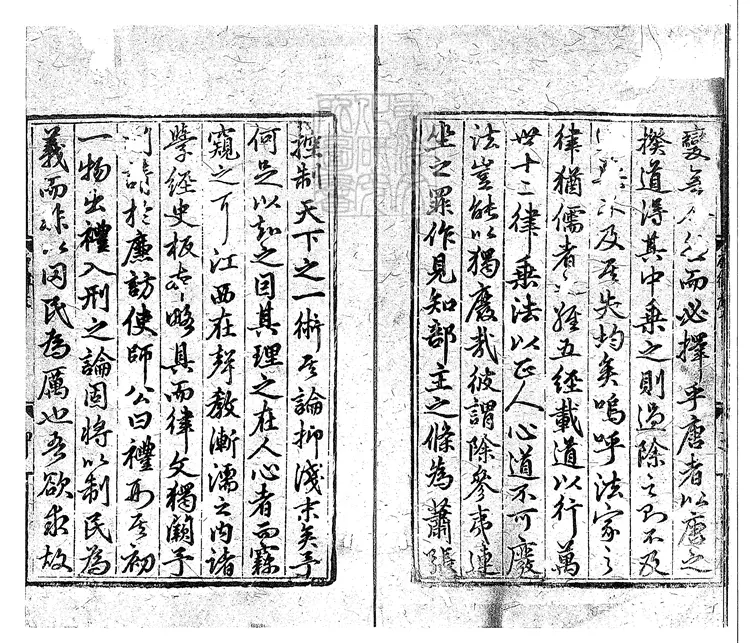 變無□□而必擇乎唐者以唐之
揆道得其中乗之則過除之即不及
□□□及其失均矣嗚呼法家之
律猶儒者之經五經載道以行萬
世十二律乗法以正人心道不可廢
法豈能以獨廢哉彼謂除參夷連
坐之罪作見知部主之條為蕭張
控制天下之一術其論抑淺末矣予
何足以知之目其理之在人心者而窺
窺之可江西在聲教漸濡之内諸
學經史板本略具而律文獨闕予
請於廉訪使師公曰禮刑其初
一物出禮入刑之論固將以制民為
義而非以罔民為厲也吾欲求故